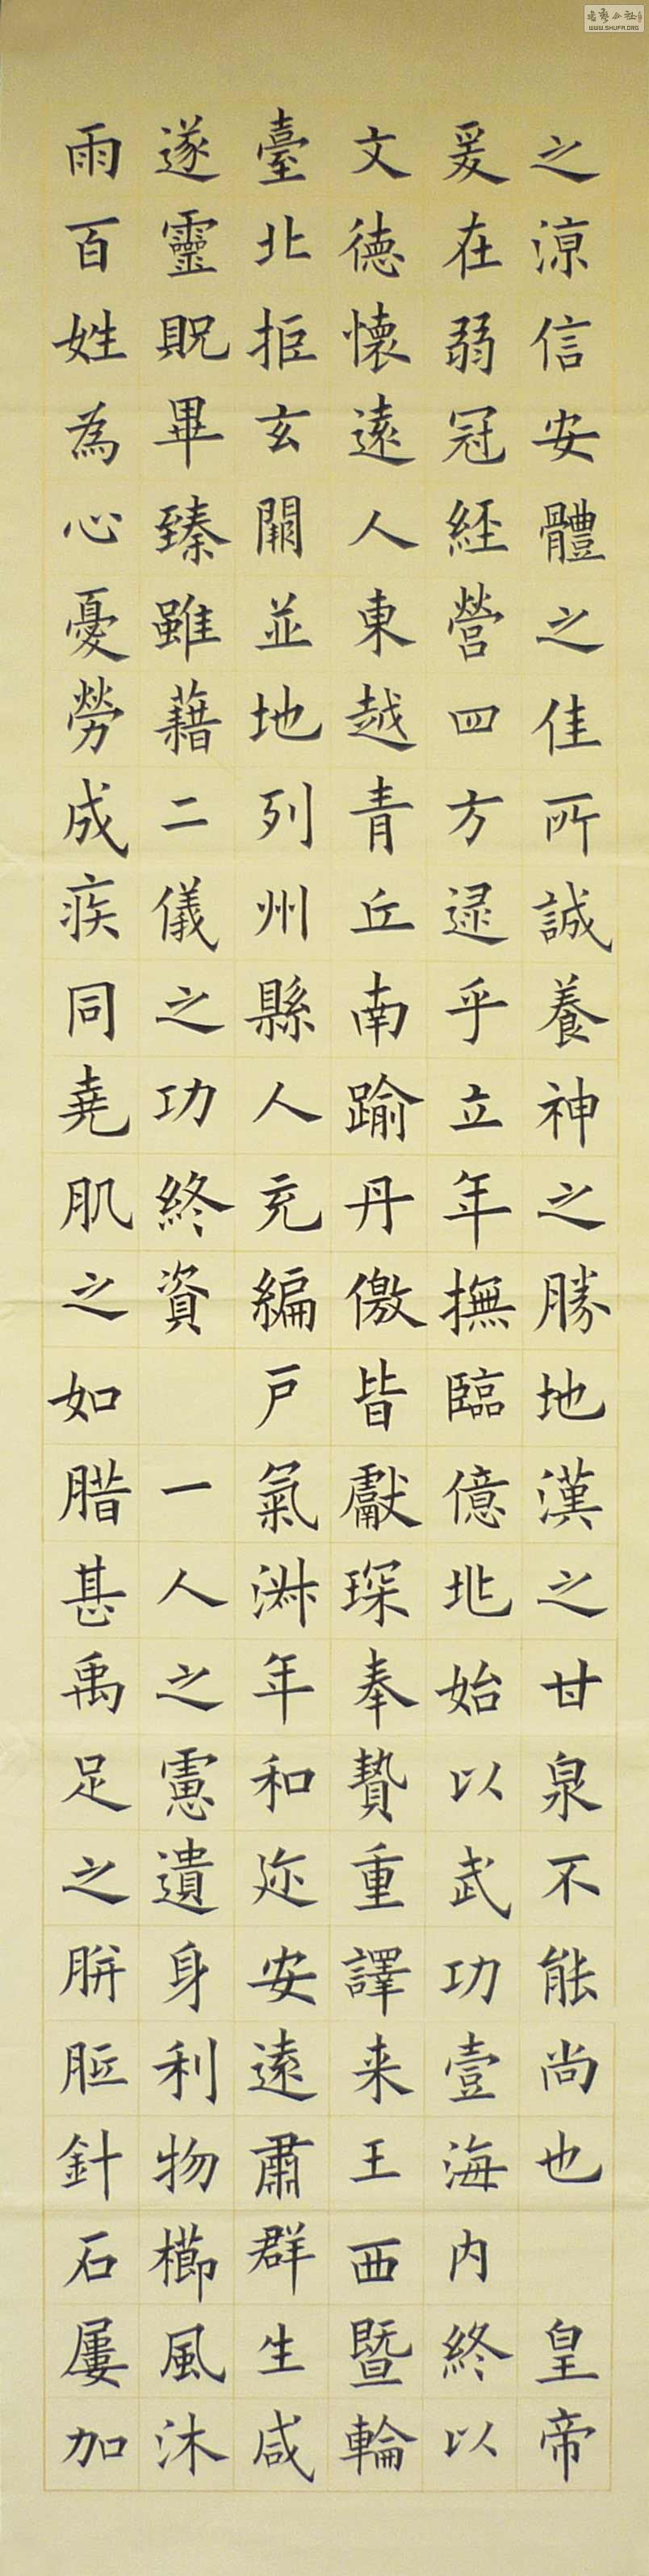 之涼信安體之佳所誠養神之勝地漢之甘泉不能尚也 皇帝
爰在弱冠經營四方逯乎立年撫臨億兆始以武功壹海内終以
文德懷遠人東越青丘南踰丹儌皆獻琛奉贄重譯来王西暨輪
臺北拒玄闕並地列州縣人充編戸氣淋年和迩安遠肅群生咸
遂靈貺畢臻雖藉二儀之功終資 一人之慮遺身利物櫛風沐
雨百姓為心憂勞成疾同堯肌之如腊甚禹足之腁胝針石屢加
WWW.SHUFA.ORG